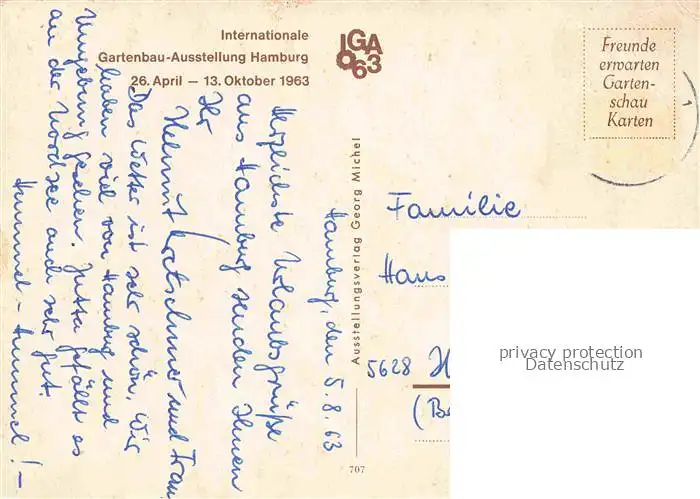 Internationale
Gartenbau-Ausstellung Hamburg
26. April — 13. Oktober 1963
IGA
63
Freunde
erwarten
Garten-
schau
Karten
Hamburg, den 5.8.63
Herzlichste Urlaubsgrüße
aus Hamburg senden Ihnen
Ihr
Helmut Kretschmer und Frau
Das Wetter ist sehr schön. Wir
haben viel von Hamburg und
Umgebung gesehen. Jutta gefällt es
an der Nordsee auch sehr gut.
Hummel – Hummel! –
Ausstellungsverlag Georg Michel
707
Familie
Hans
5628 H
(Be
privacy protection
Datenschutz